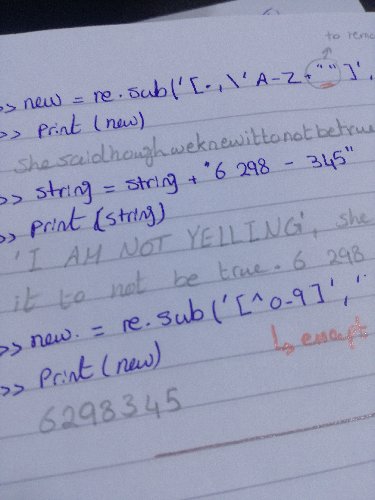 to remo
>> new = re.sub('[.,\'A-Z+""]',
>> print (new)
shesaidthoughweknewittonotbetrue
>> string = string + "6 298 - 345"
>> print (string)
'I AM NOT YELLING', she
it to not be true. 6 298
>> new. = re.sub('[^0-9]','
↳ except
>> Print (new)
6298345